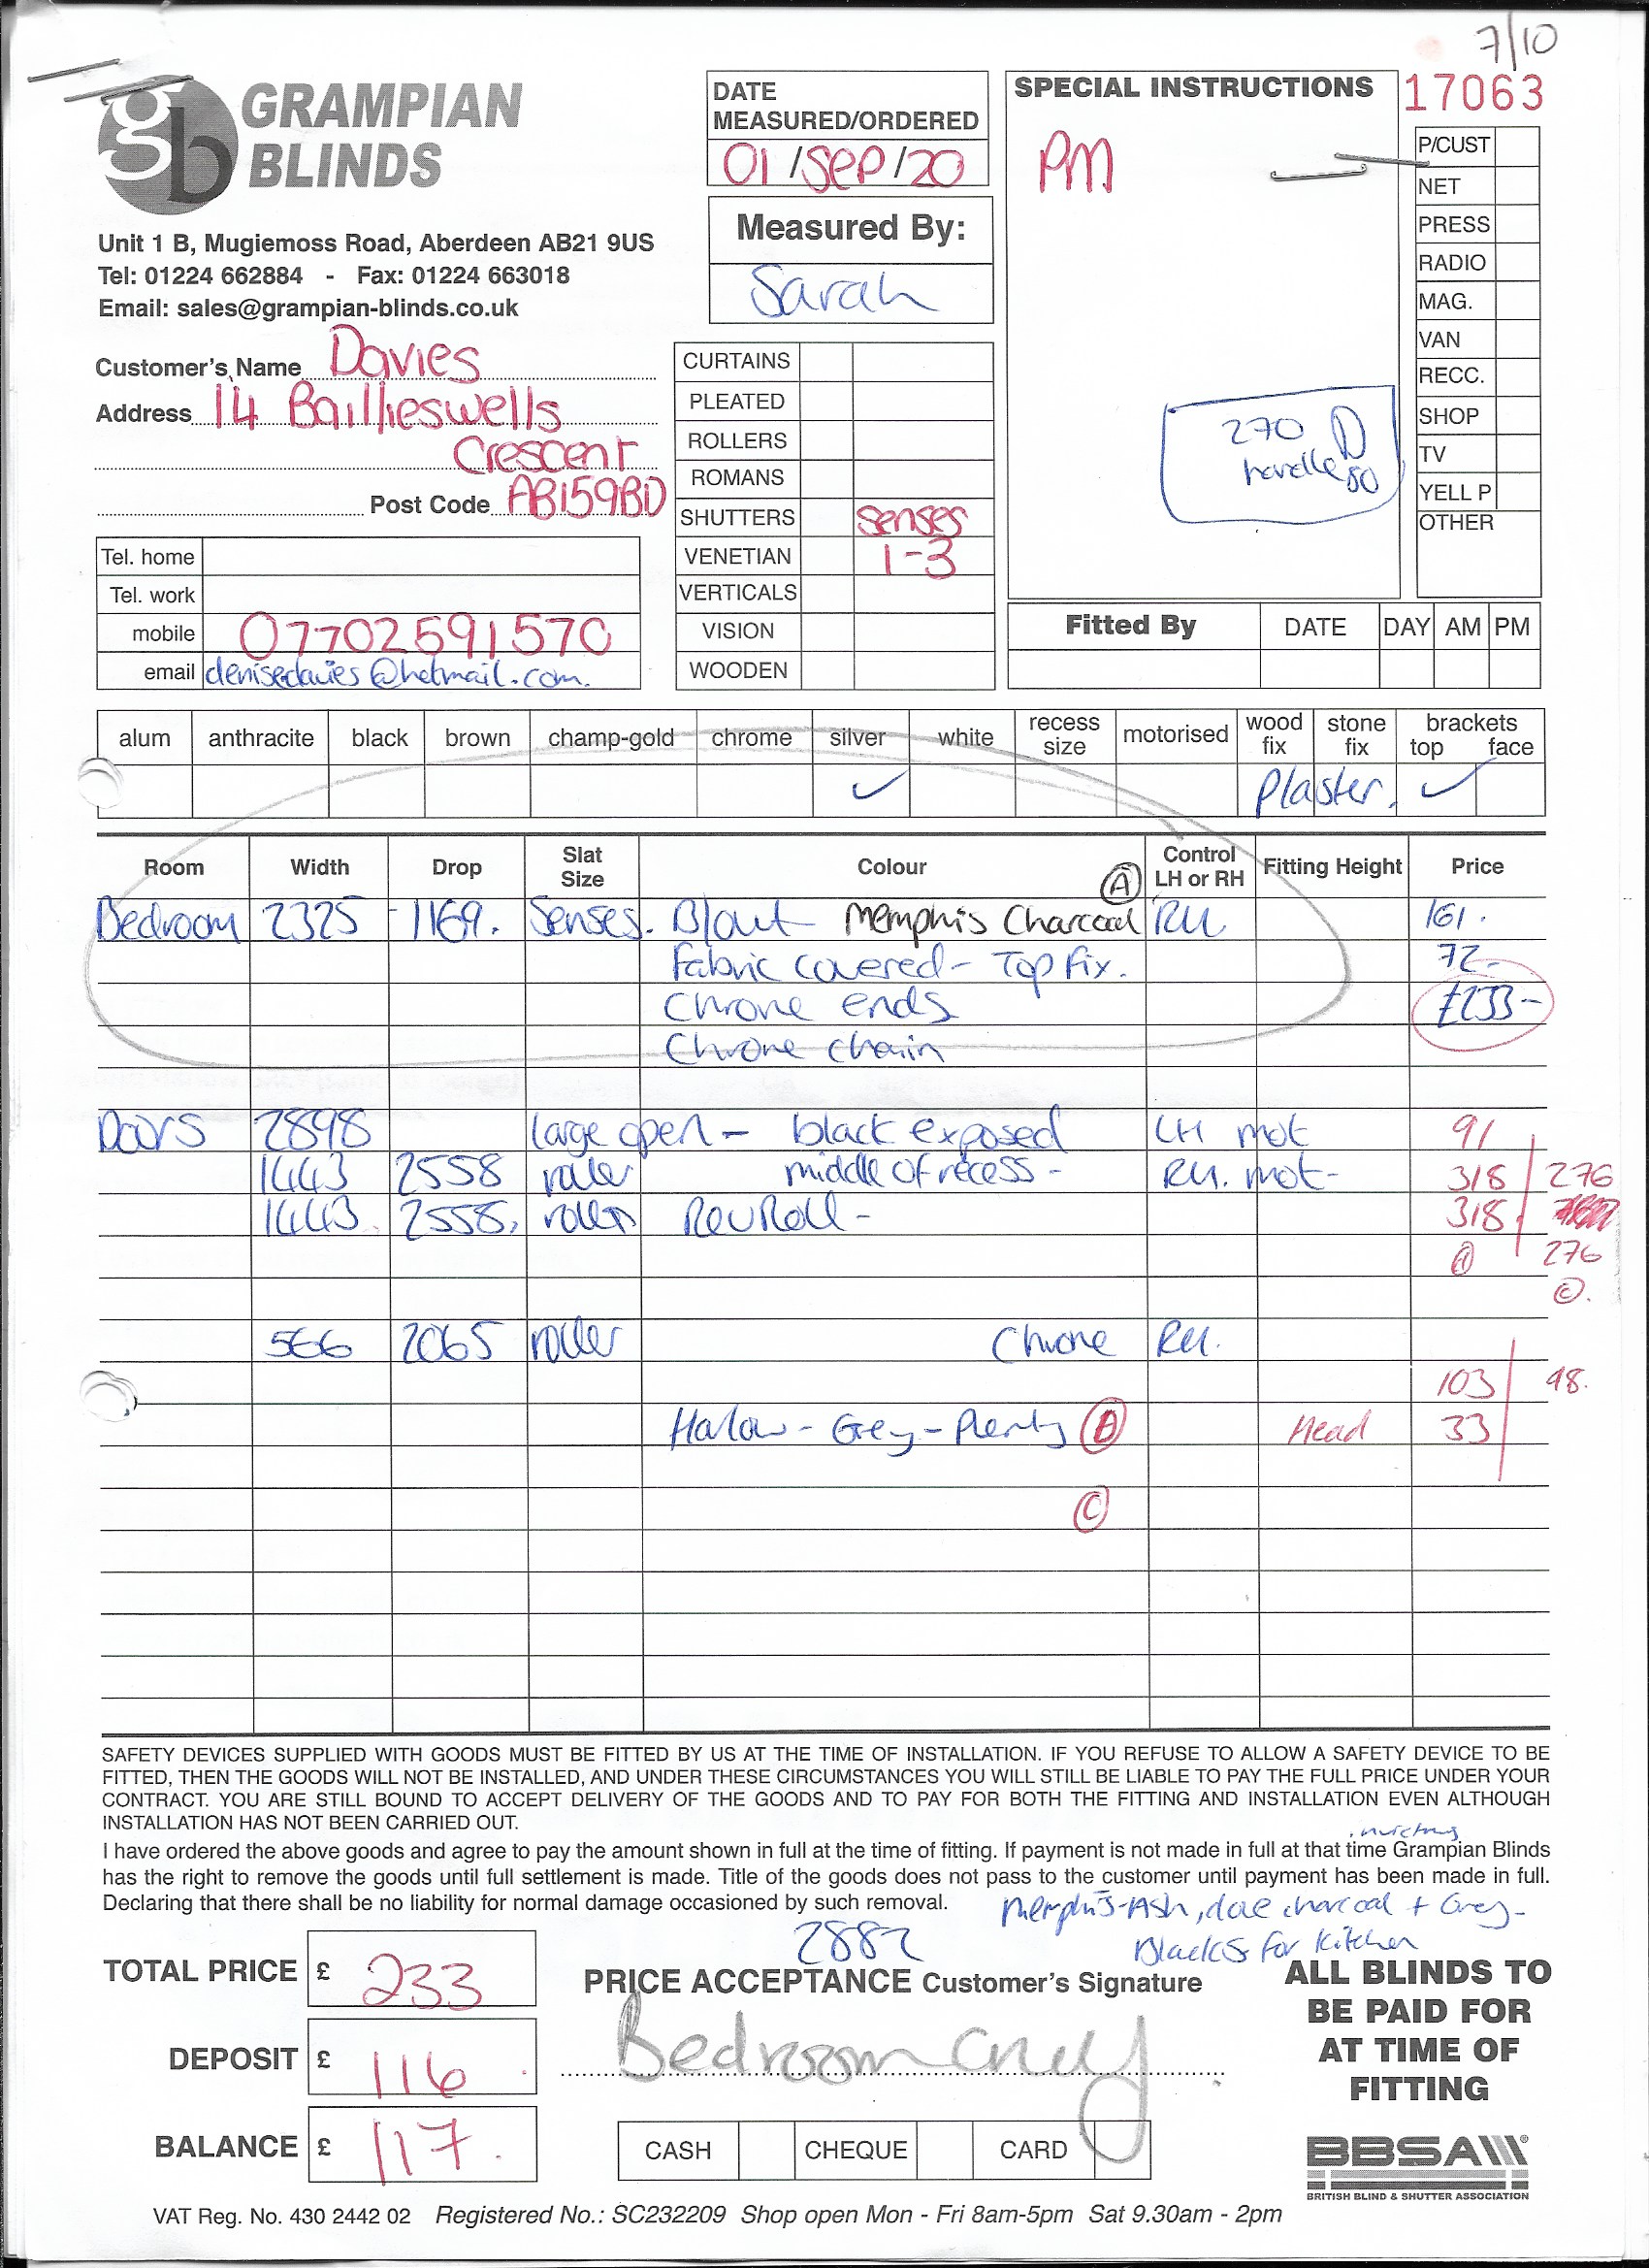 7/10
GRAMPIAN
BLINDS
gb
Unit 1 B, Mugiemoss Road, Aberdeen AB21 9US
Tel: 01224 662884 - Fax: 01224 663018
Email: sales@grampian-blinds.co.uk
DATE
MEASURED/ORDERED
01/SEP/20
Measured By:
Sarah
SPECIAL INSTRUCTIONS
PM
270 D
handle 80
17063
P/CUST
NET
PRESS
RADIO
MAG.
VAN
RECC.
SHOP
TV
YELL P
OTHER
Customer's Name Davies
Address 14 Baillieswells
Crescent
Post Code AB159BD
Tel. home
Tel. work
mobile 07702591570
email denisedavies@hotmail.com.
CURTAINS
PLEATED
ROLLERS
ROMANS
SHUTTERS Senses
VENETIAN 1-3
VERTICALS
VISION
WOODEN
Fitted By DATE DAY AM PM
alum anthracite black brown champ-gold chrome silver white recess size motorised wood fix stone fix brackets top face
✓ Plaster. ✓
Room Width Drop Slat Size Colour Control LH or RH Fitting Height Price
Bedroom 2325 1169. Senses. B/out Memphis Charcoal (A) RH 161.
Fabric covered - Top fix. 72-
Chrome ends £233-
Chrome chain
Doors 2898 large open - black exposed LH mot 91
1443 2558 roller middle of recess - RH. mot- 318 276
1443 2558, roller Rev Roll - 318
276
©.
566 2065 roller Chrome RH.
103 98.
Harlow - Grey - Plenty Head 33
©
SAFETY DEVICES SUPPLIED WITH GOODS MUST BE FITTED BY US AT THE TIME OF INSTALLATION. IF YOU REFUSE TO ALLOW A SAFETY DEVICE TO BE
FITTED, THEN THE GOODS WILL NOT BE INSTALLED, AND UNDER THESE CIRCUMSTANCES YOU WILL STILL BE LIABLE TO PAY THE FULL PRICE UNDER YOUR
CONTRACT. YOU ARE STILL BOUND TO ACCEPT DELIVERY OF THE GOODS AND TO PAY FOR BOTH THE FITTING AND INSTALLATION EVEN ALTHOUGH
INSTALLATION HAS NOT BEEN CARRIED OUT.
I have ordered the above goods and agree to pay the amount shown in full at the time of fitting. If payment is not made in full at that time Grampian Blinds
has the right to remove the goods until full settlement is made. Title of the goods does not pass to the customer until payment has been made in full.
Declaring that there shall be no liability for normal damage occasioned by such removal.
Memphis-Ash, charcoal + Grey-
Blacks for Kitchen
2882
TOTAL PRICE £ 233
DEPOSIT £ 116
BALANCE £ 117.
PRICE ACCEPTANCE Customer's Signature
Bedroom only
CASH CHEQUE CARD
ALL BLINDS TO
BE PAID FOR
AT TIME OF
FITTING
BBSA
BRITISH BLIND & SHUTTER ASSOCIATION
VAT Reg. No. 430 2442 02 Registered No.: SC232209 Shop open Mon - Fri 8am-5pm Sat 9.30am - 2pm